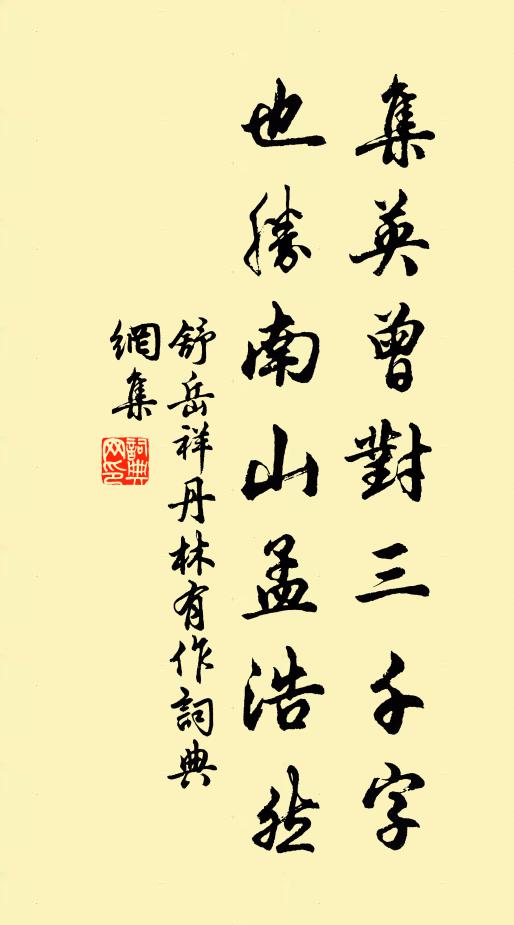 集英曾對三千字
也勝南山孟浩然
舒岳祥丹林有作詞典
網集
詞典
网印